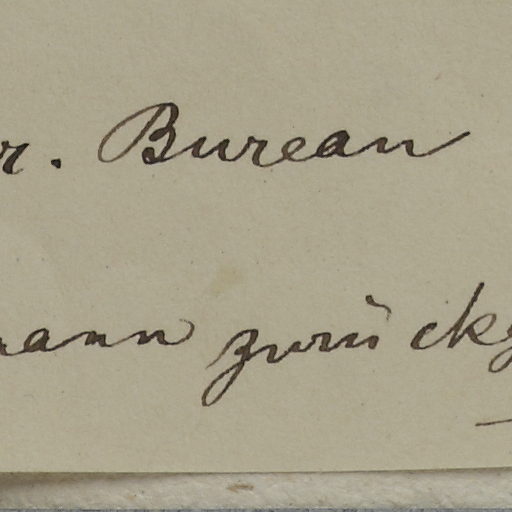 r. Bureau
mann zurück